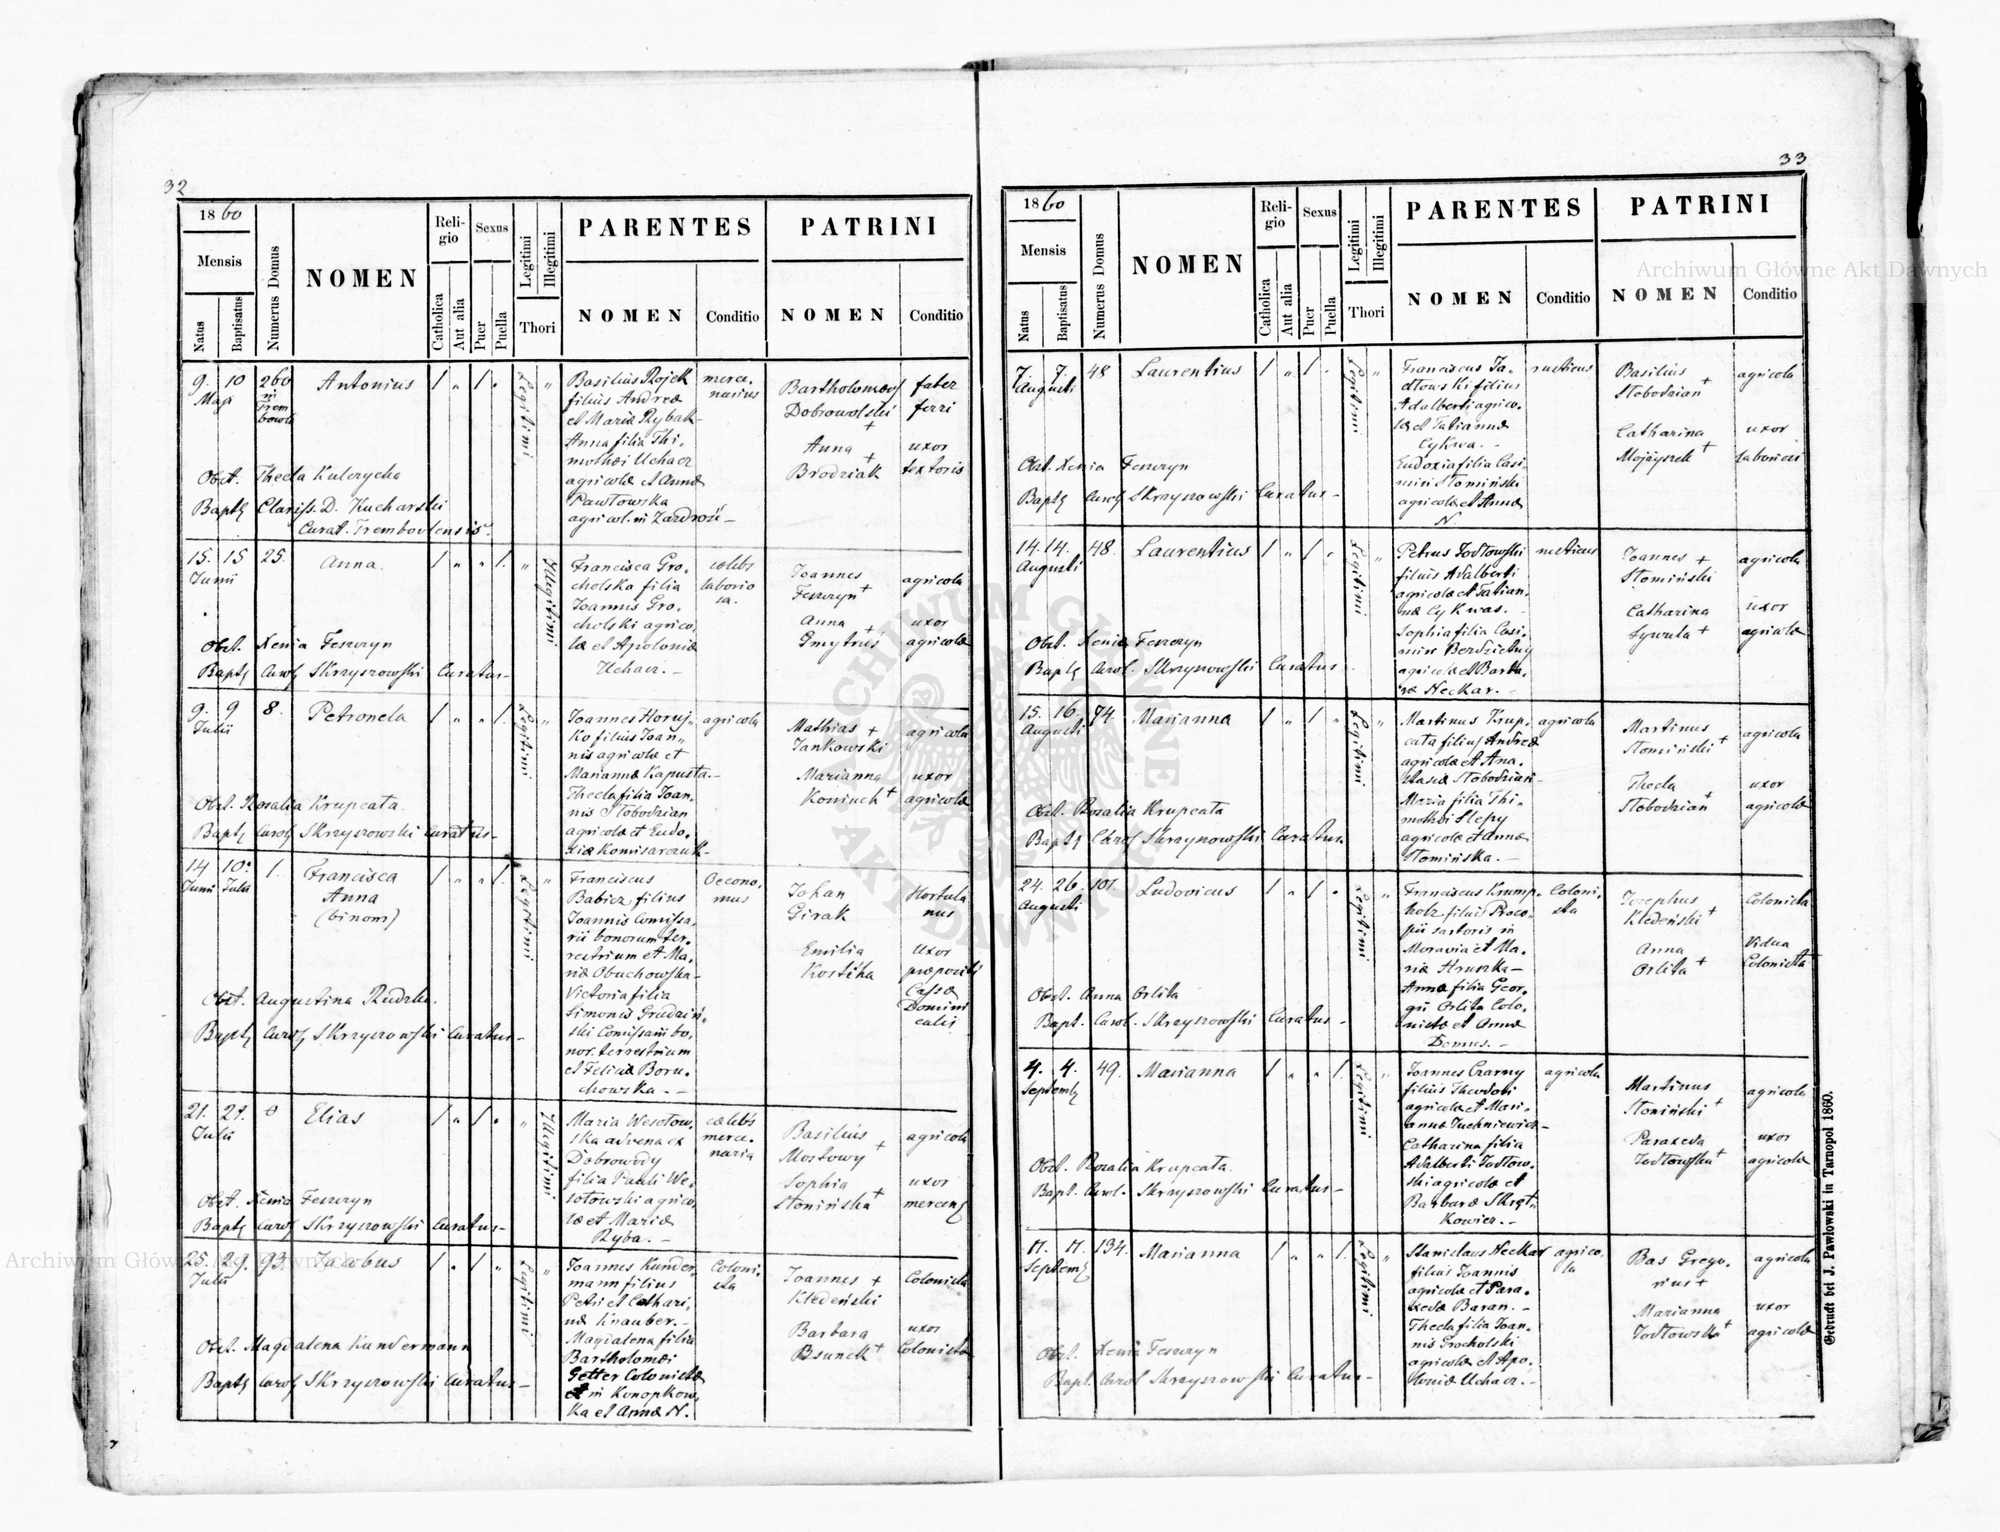 32
18 60
Mensis
Natus
Baptisatus
Numerus Domus
NOMEN
Reli-
gio
Catholica
Aut alia
Sexus
Puer
Puella
Legitimi
Illegitimi
Thori
PARENTES
NOMEN
Conditio
PATRINI
NOMEN
Conditio
9. 10 260 Antonius
Maji
Legitimi
Basilius Rojek
filius Andreæ
et Mariæ Rybak
Anna filia Thi-
mothæi Uchacz
agricolæ et Annæ
Pawłowska
agricol. in Zazdrość –
merce-
narius
Bartholomæus
Dobrowolski
+
Anna
+
Brodziak
faber
ferri
uxor
textoris
Obst. Thecla Kulczycka
Clariss. D. Kucharski
Curat. Trembovlensis
15. 15 25. Anna
Junii
Illegitimi
Francisca Gro-
cholska filia
Joannis Gro-
cholski agrico-
læ et Apoloniæ
Uchacz. –
cælebs
laborio
sa.
Joannes
Feszczyn +
Anna +
Dmytrus
agricola
uxor
agricolæ
Obst. Xenia Feszczyn
Bapt. Carol. Skrzyszowski Curatus –
9. 9 8. Petronela
Julii
Legitimi
Marianæ Kapusta. –
Thecla filia Joan-
nis Słobodzian
agricolæ et Eudo-
xiæ Komisarczuk –
agricola
Mathias +
Jankowski
Marianna
Koniuch +
agricola
uxor
agricolæ
Obst. Rosalia Krupcata
Bapt. Carol. Skrzyszowski Curatus –
14 10. 1. Francisca
Junii Julii Anna
(binom)
Legitimi
Franciscus
Babicz filius
Joannis Comissa-
rii bonorum ter-
restrium et Ma-
riæ Obuchowska –
Victoria filia
Simonis Grudziń-
ski Comissarii bo-
nor. terrestrium
et Feliciæ Boru-
chowska. –
Oecono-
mus
Johan
Girak
Emilia
Kostiha
Hortula
nus
Uxor
præpositi
Cassæ
Domini
calis
Obst. Augustina Rudzka
Bapt. Carol. Skrzyszowski Curatus –
21. 21. 0 Elias
Julii
Illegitimi
Maria Wesołow-
ska advena ex
Dobrowody
filia Pauli We-
sołowski agrico-
læ et Mariæ
Ryba. –
cælebs
merce-
naria
Basilius
+
Mostowy
Sophia
+
Słomińska
agricola
uxor
Obst. Xenia Feszczyn
Bapt. Carol. Skrzyszowski Curatus –
25. 29. 93. Jacobus
Julii
Legitimi
Joannes Kunder-
mann filius
Petri et Cathari-
næ Knauber. –
Magdalena filia
Bartholomæi
Getter Colonistæ
in Konopkow-
ka et Annæ N.
Coloni-
sta
Joannes +
Kledeński
Barbara
+
Colonista
uxor
Colonistæ
Obst. Magdalena Kundermann
Bapt. Carol. Skrzyszowski Curatus –
33
18 60
Mensis
Natus
Baptisatus
Numerus Domus
NOMEN
Reli-
gio
Catholica
Aut alia
Sexus
Puer
Puella
Legitimi
Illegitimi
Thori
PARENTES
NOMEN
Conditio
PATRINI
NOMEN
Conditio
7. 7. 48 Laurentius
Augusti
Legitimi
Franciscus Jo-
dłowski filius
Adalberti agrico-
læ et Tatiannæ
Cykwa. –
Eudoxia filia Casi-
miri Słomiński
agricolæ et Annæ
N.
rusticus
Basilius
+
Słobodzian
Catharina
+
agricola
uxor
Obst. Xenia Feszczyn
Bapt. Carol. Skrzyszowski Curatus –
14. 14. 48. Laurentius
Augusti
Legitimi
Petrus Jodłowski
filius Adalberti
agricolæ et Tatian-
næ Cykwas. –
Sophia filia Casi-
agricolæ et Barba-
ræ Neckar. –
rusticus
Joannes +
Słomiński
Catharina
+
agricola
uxor
agricolæ
Obst. Xenia Feszczyn
Bapt. Carol. Skrzyszowski Curatus –
15. 16. 74. Marianna
Augusti
Legitimi
Martinus Krup-
cata filius Andreæ
agricolæ et Ana-
stasiæ Słobodzian –
Maria filia Thi-
mothei Slepy
agricolæ et Annæ
Słomińska. –
agricola
Martinus
Słomiński +
Thecla
+
Słobodzian
agricola
uxor
agricolæ
Obst. Rosalia Krupcata
Bapt. Carol. Skrzyszowski Curatus
24. 26. 101. Ludovicus
Augusti
Legitimi
Franciscus Krump-
holz filius Proco-
pii sartoris in
Moravia et Ma-
riæ Hruszka –
Anna filia Geor-
gii Orlita Colo-
nistæ et Annæ
Domus. –
Coloni-
sta
Josephus
Kledeński +
Anna
Orlita +
Colonista
Vidua
Colonista
Obst. Anna Orlita
Bapt. Carol. Skrzyszowski Curatus –
4. 4. 49. Marianna
Septemb
Legitimi
Joannes Czarny
filius Theodori
agricolæ et Mari-
annæ Juchniewicz –
Catharina filia
Adalberti Jodłow-
ski agricolæ et
Barbaræ Skręt-
kowicz. –
agricola
Martinus
Słomiński +
Paraxeda
Jodłowska +
agricola
uxor
agricolæ
Obst. Rosalia Krupcata
Bapt. Carol. Skrzyszowski Curatus –
17. 17. 134. Marianna
Septemb
Legitimi
Stanislaus Neckar
filius Joannis
agricolæ et Para-
xedæ Baran. –
Thecla filia Joan-
nis Grocholski
agricolæ et Apo-
loniæ Uchacz. –
agrico-
la
Bas Grego-
rius +
Marianna
Jodłowska +
agricola
uxor
agricolæ
Obst. Xenia Feszczyn
Bapt. Carol Skrzyszowski Curatus –
Gedruckt bei J. Pawłowski in Tarnopol 1860.
Archiwum Główne Akt Dawnych
Archiwum Główne Akt Dawnych
ARCHIWUM GŁÓWNE AKT DAWNYCH